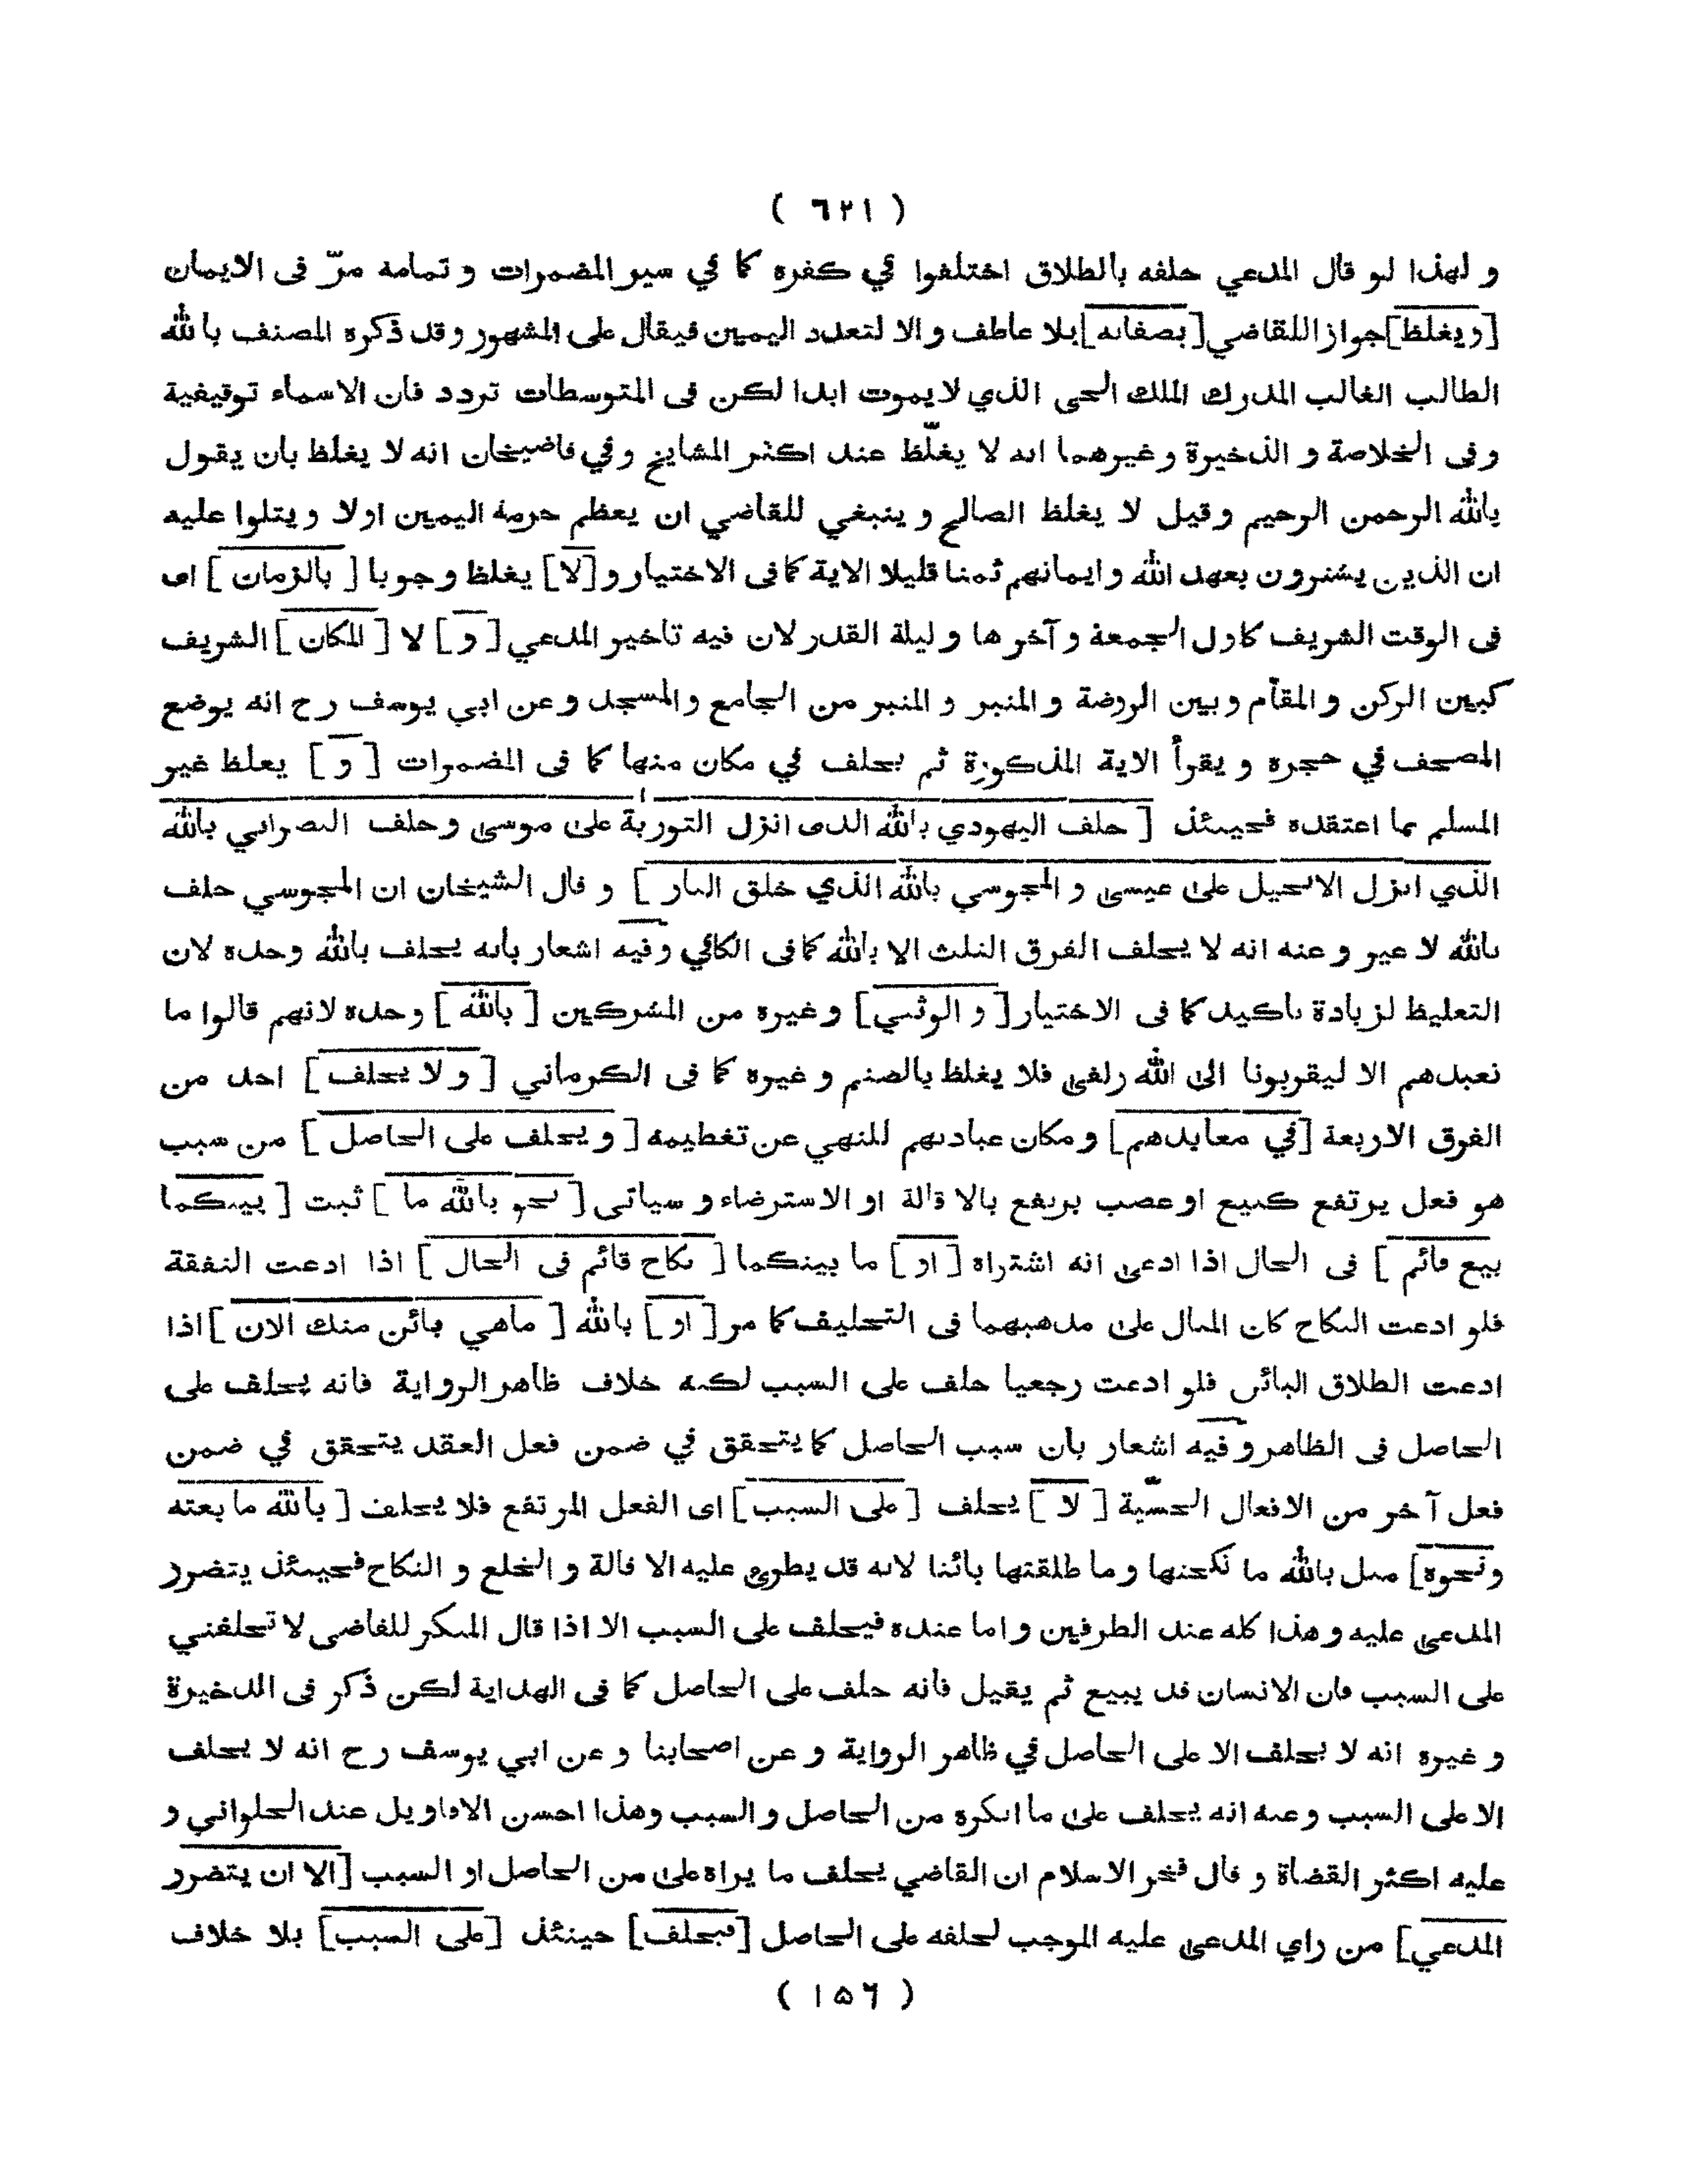 ( ٦٢١ )
و لهذا لو قال المدعي حلفه بالطلاق اختلفوا في كفره كما في سير المضمرات و تمامه مرّ فى الايمان
[ويغلظ] جوازا للقاضي [بصفاته] بلا عاطف و الا لتعدد اليمين فيقال على المشهور وقد ذكره المصنف بالله
الطالب الغالب المدرك الملك الحى الذي لايموت ابدا لكن فى المتوسطات تردد فان الاسماء توقيفية
وفى الخلاصة و الذخيرة وغيرهما انه لا يغلّظ عند اكثر المشايخ وفي قاضيخان انه لا يغلظ بان يقول
بالله الرحمن الرحيم وقيل لا يغلظ الصالح و ينبغي للقاضي ان يعظم حرمة اليمين اولا ويتلوا عليه
ان الذين يشترون بعهد الله وايمانهم ثمنا قليلا الاية كما فى الاختيار و[لا] يغلظ وجوبا [بالزمان] اى
فى الوقت الشريف كاول الجمعة وآخرها وليلة القدر لان فيه تاخير المدعي [و] لا [المكان] الشريف
كبين الركن والمقام وبين الروضة و المنبر و المنبر من الجامع والمسجد وعن ابي يوسف رح انه يوضع
المصحف في حجره و يقرأ الاية المذكورة ثم يحلف في مكان منها كما فى المضمرات [و] يغلظ غير
المسلم بما اعتقده فحينئذ [حلف اليهودي بالله الذى انزل التورىة على موسى وحلف النصراني بالله
الذي انزل الانجيل على عيسى و المجوسي بالله الذي خلق النار] و قال الشيخان ان المجوسي حلف
بالله لا غير و عنه انه لا يحلف الفرق الثلث الا بالله كما فى الكافي وفيه اشعار بانه يحلف بالله وحده لان
التغليظ لزيادة تاكيد كما فى الاختيار [و الوثني] وغيره من المشركين [بالله] وحده لانهم قالوا ما
نعبدهم الا ليقربونا الى الله زلفى فلا يغلظ بالصنم و غيره كما فى الكرماني [و لا يحلف] احد من
الفرق الاربعة [في معابدهم] ومكان عبادتهم للنهي عن تعظيمه [ويحلف على الحاصل] من سبب
هو فعل يرتفع كبيع او غصب يرتفع بالاقالة او الاسترضاء و سياتى [نحو بالله ما] ثبت [بينكما
بيع قائم] فى الحال اذا ادعى انه اشتراه [او] ما بينكما [نكاح قائم فى الحال] اذا ادعت النفقة
فلو ادعت النكاح كان المال على مذهبهما فى التحليف كما مر [او] بالله [ماهي بائن منك الان] اذا
ادعت الطلاق البائن فلو ادعت رجعيا حلف على السبب لكنه خلاف ظاهر الرواية فانه يحلف على
الحاصل فى الظاهر وفيه اشعار بان سبب الحاصل كما يتحقق في ضمن فعل العقد يتحقق في ضمن
فعل آخر من الافعال الحسّية [لا] يحلف [على السبب] اى الفعل المرتفع فلا يحلف [بالله ما بعته
ونحوه] مثل بالله ما نكحتها وما طلقتها بائنا لانه قد يطرئ عليه الاقالة و الخلع و النكاح فحينئذ يتضرر
المدعى عليه وهذا كله عند الطرفين واما عنده فيحلف على السبب الا اذا قال المنكر للقاضى لا تحلفني
على السبب فان الانسان قد يبيع ثم يقيل فانه حلف على الحاصل كما فى الهداية لكن ذكر فى الذخيرة
و غيره انه لا يحلف الا على الحاصل في ظاهر الرواية و عن اصحابنا و عن ابي يوسف رح انه لا يحلف
الا على السبب وعنه انه يحلف على ما انكره من الحاصل و السبب وهذا احسن الاقاويل عند الحلواني و
عليه اكثر القضاة و قال فخر الاسلام ان القاضي يحلف ما يراه على من الحاصل او السبب [الا ان يتضرر
المدعي] من راي المدعى عليه الموجب لحلفه على الحاصل [فيحلف] حينئذ [على السبب] بلا خلاف
( ١٥٦ )